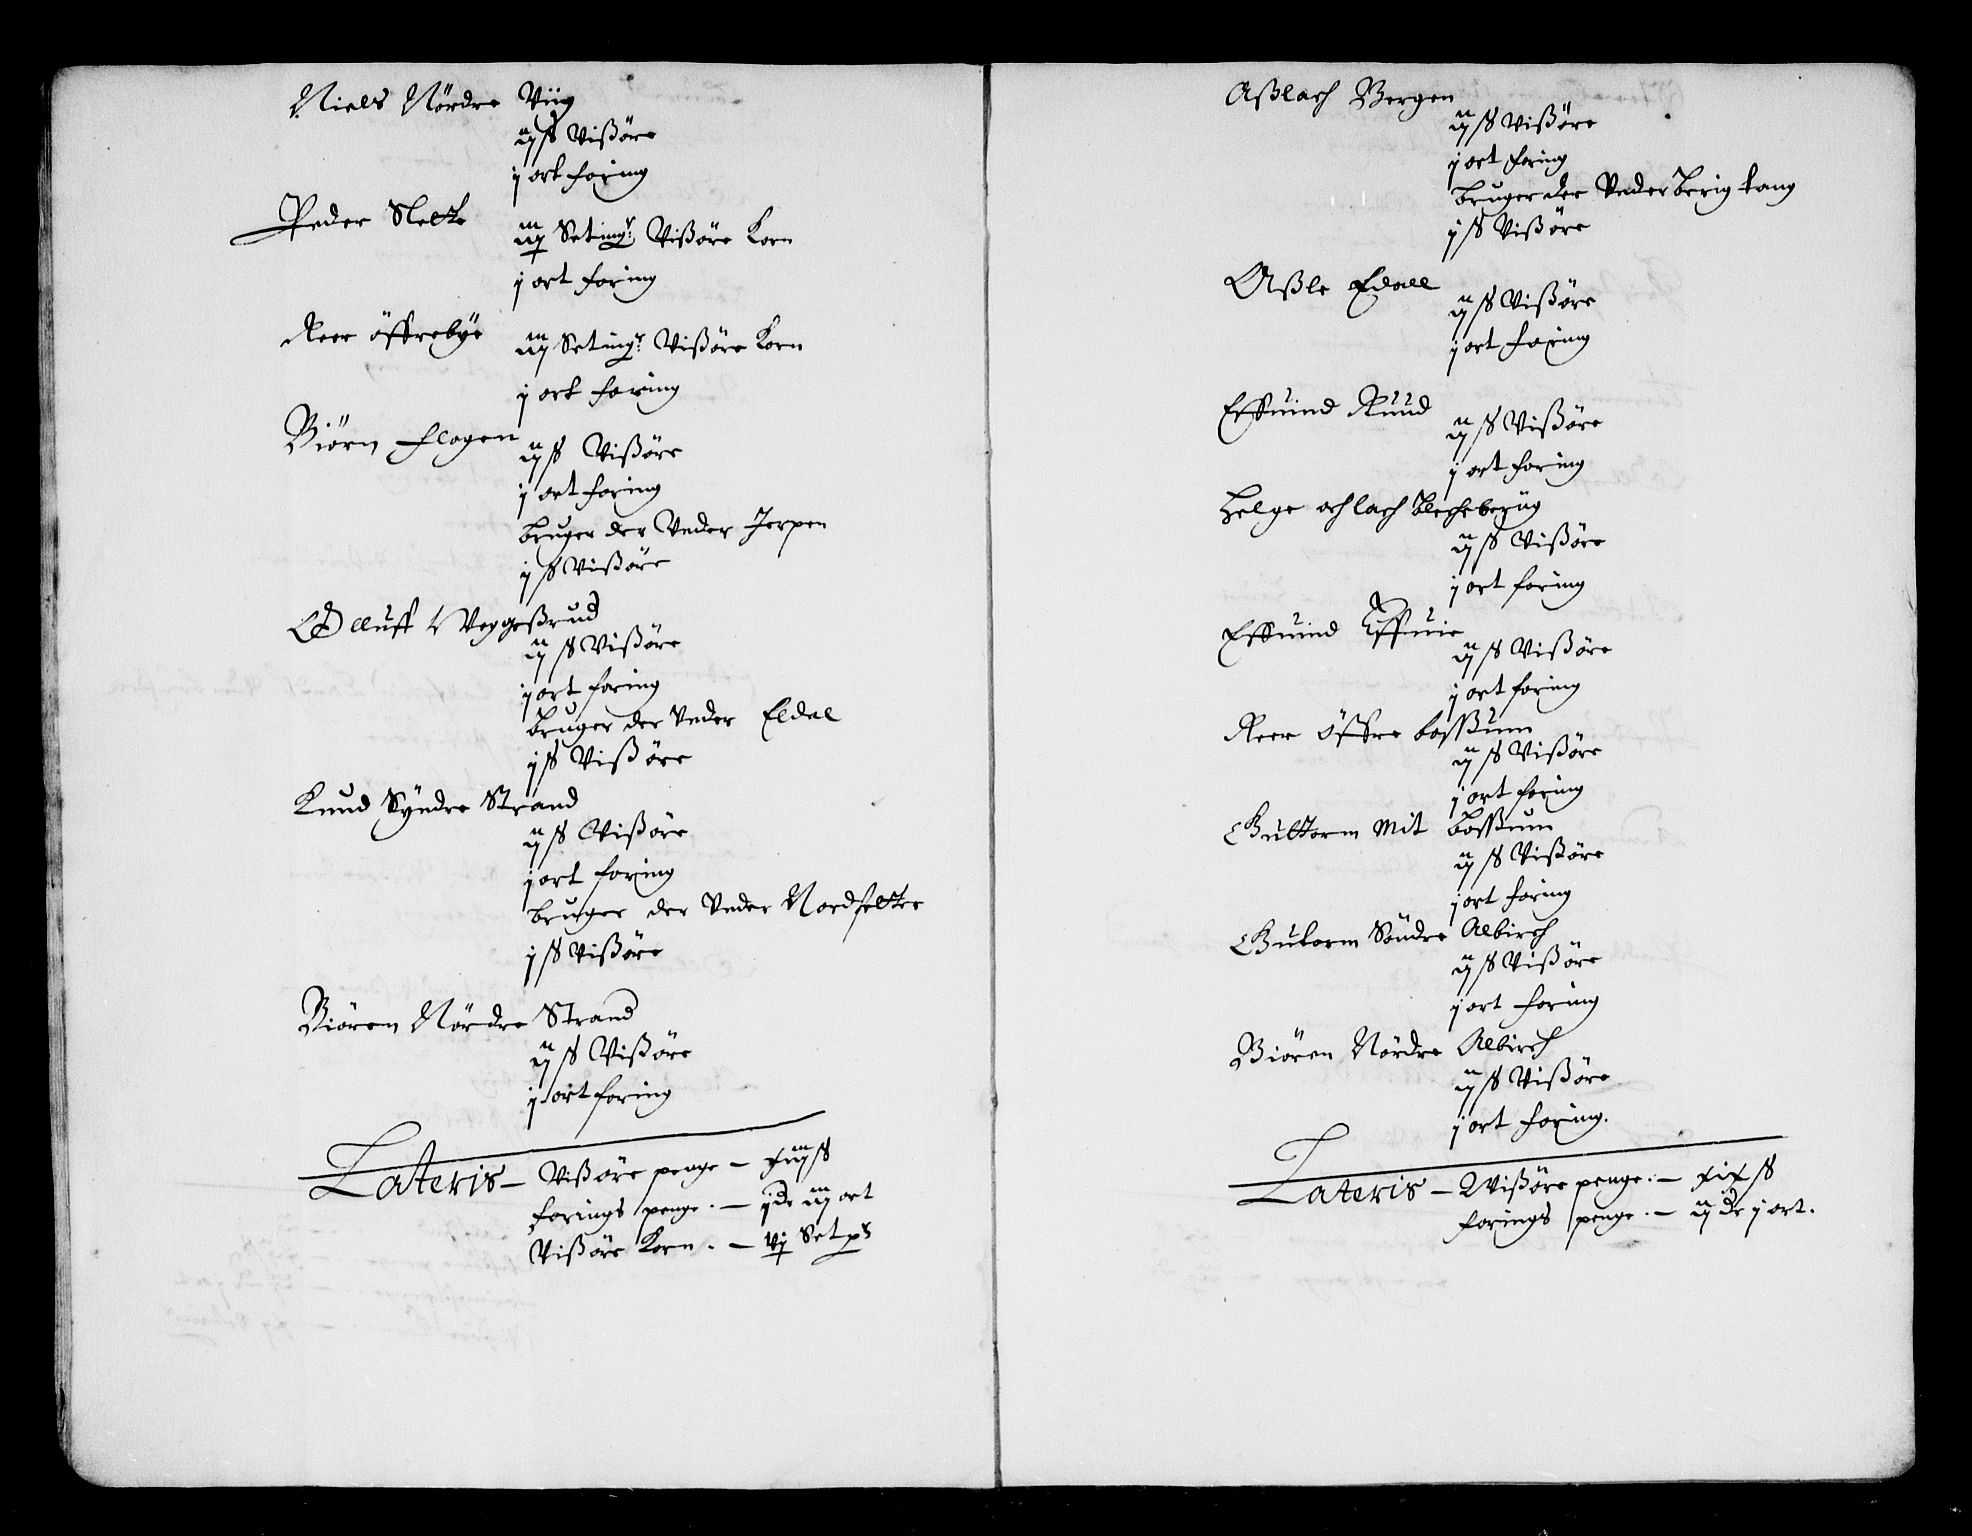 Niels Nördre Viig
ij ß Vißöre
j ort foring
Peder Slette
iij Seting: Vißöre Korn
j ort foring
Reer öffrebye
iij Seting: Vißöre Korn
j ort foring
Biørn Flagen
ij ß Vißöre
j ort foring
bruger der Under Jerpen
j ß Vißöre
Olluff Veggeßrud
ij ß Vißöre
j ort foring
bruger der Under Eldal
j ß Vißöre
Knud Syndre Strand
ij ß Vißöre
j ort foring
bruger der Under Nordseltter
j ß Vißöre
Biören Nördre Strand
ij ß Vißöre
j ort foring
Lateris – Vißöre penge – xiij ß
forings penge – j dr iij ort
Vißöre Korn – vj Set
Aßlach Bergen
ij ß Vißöre
j ort foring
bruger der Under Berig
j ß Vißöre
Aßle Edall
ij ß Vißöre
j ort foring
Effuind Ruud
ij ß Vißöre
j ort foring
Helge
ij ß Vißöre
j ort foring
Effuind
ij ß Vißöre
j ort foring
Reer Öffre boßßum
ij ß Vißöre
j ort foring
Guttorm Mit Boßßum
ij ß Vißöre
j ort foring
Gutorm Söndre Albirch
ij ß Vißöre
j ort foring
Biören Nördre Albirch
ij ß Vißöre
j ort foring.
Lateris – Wißöre penge – xix ß
forings penge – ij dr j ort.